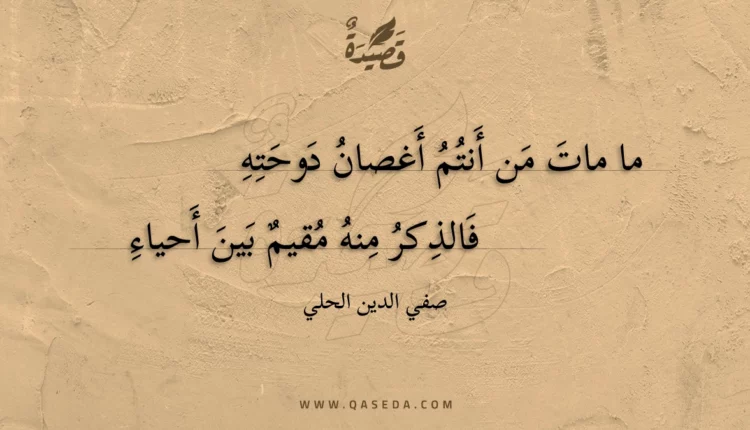 قَصِيدَةٌ
ما ماتَ مَن أَنتُمُ أَغصانُ دَوحَتِهِ
فَالذِكرُ مِنهُ مُقيمٌ بَينَ أَحياءِ
صفي الدين الحلي
WWW.QASEDA.COM